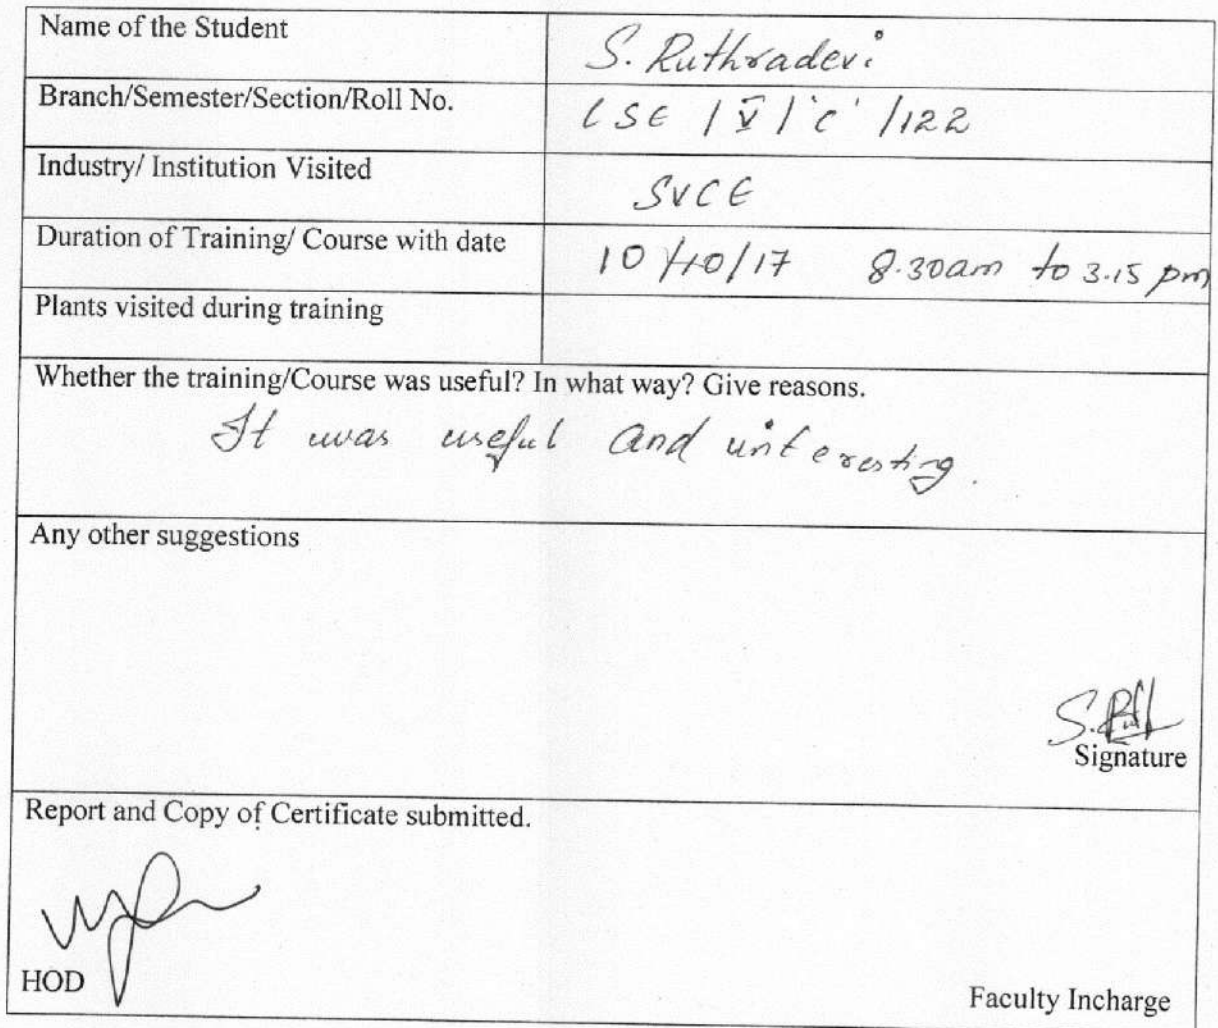 Name of the Student S. Ruthradevi
Branch/Semester/Section/Roll No. CSE / V / 'C' / 122
Industry/ Institution Visited SVCE
Duration of Training/ Course with date 10/10/17 8.30am to 3.15 pm
Plants visited during training
Whether the training/Course was useful? In what way? Give reasons.
It was useful and interesting.
Any other suggestions
Signature
Report and Copy of Certificate submitted.
HOD
Faculty Incharge